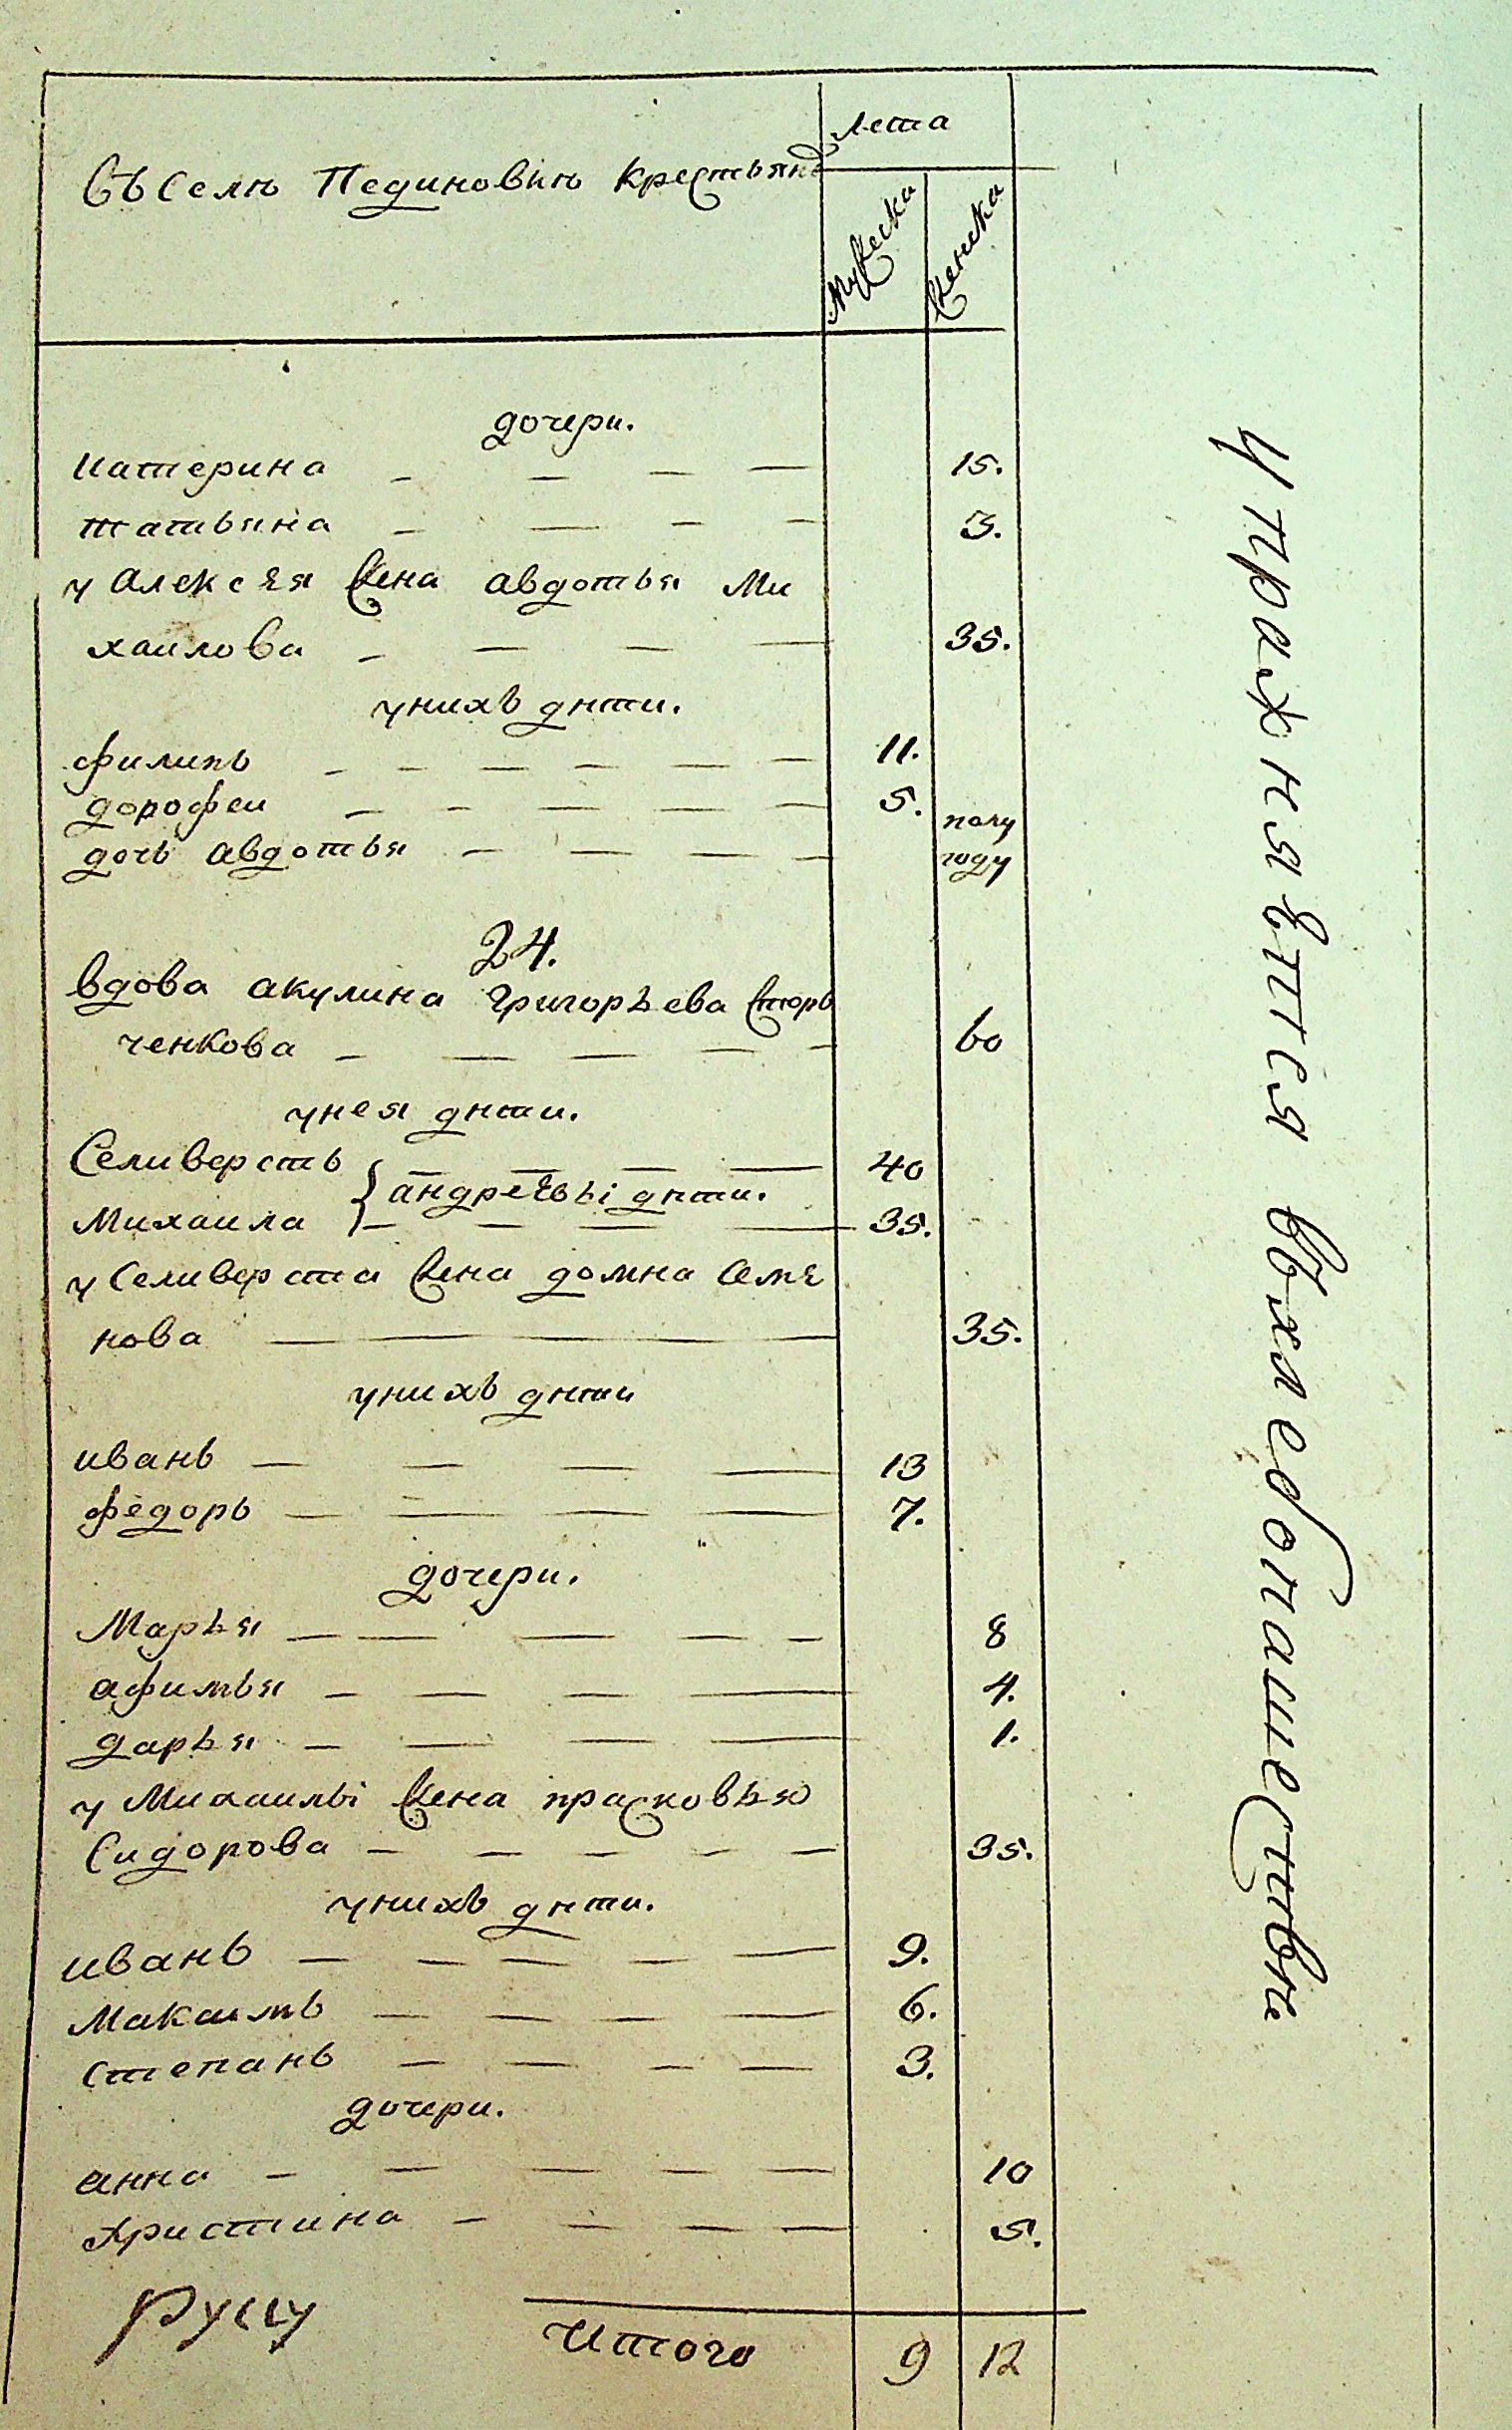 Въ Селѣ Пединовкѣ крестьянъ
Лета
Мужеска
Женска
дочери.
Катерина 15.
татьяна 3.
у Алексея жена авдотья Ми
хаилова 35.
унихъ дѣти.
филипъ 11.
дорофеи 5.
дочь авдотья полу
году
24.
вдова акулина григорьева Сторъ
ченкова 60
унея дѣти.
Селиверстъ 40
андреевы дѣти.
Михаила 35.
у Селиверста жена домна Семе
нова 35.
унихъ дѣти
иванъ 13
федоръ 7.
дочери.
Марья 8
афимья 4.
дарья 1.
у Михаилы жена прасковья
Сидорова 35.
унихъ дѣти.
иванъ 9.
Макаимъ 6.
степанъ 3.
дочери.
анна 10
христина 5.
руку
Итого 9 12
упражняется въ хлебопашествѣ